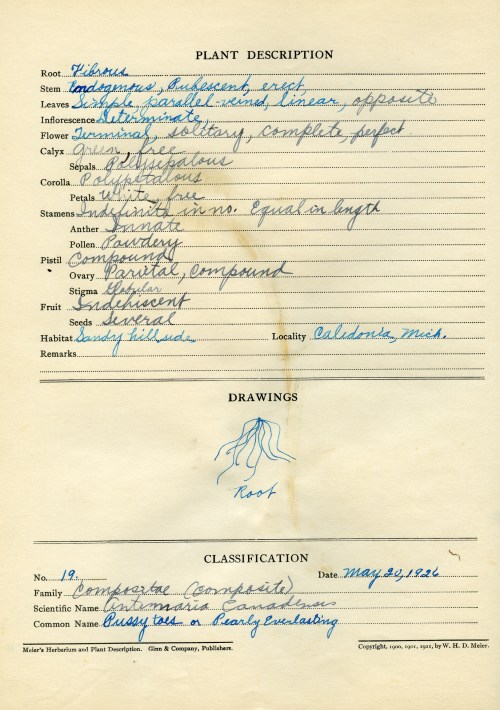 PLANT DESCRIPTION
Root Fibrous
Stem Endogmous, Pubescent, erect,
Leaves Simple, parallel-veined, linear, opposite
Inflorescence Determinate,
Flower Terminal, solitary, complete, perfect.
Calyx Green, free
Sepals Polysepalous
Corolla Polypetalous
Petals White, free
Stamens Indefinite in no. Equal in length
Anther Innate
Pollen Powdery
Pistil Compound
Ovary Parietal, Compound
Stigma Globular
Fruit Indehiscent
Seeds Several
Habitat Sandy hillside Locality Caledonia, Mich.
Remarks
DRAWINGS
Root
CLASSIFICATION
No. 19. Date May 20, 1926
Family Compositae (Composite)
Scientific Name Antennaria Canadensis
Common Name Pussytoes or Pearly Everlasting
Meier's Herbarium and Plant Description. Ginn & Company, Publishers.
Copyright, 1900, 1901, 1921, by W. H. D. Meier.